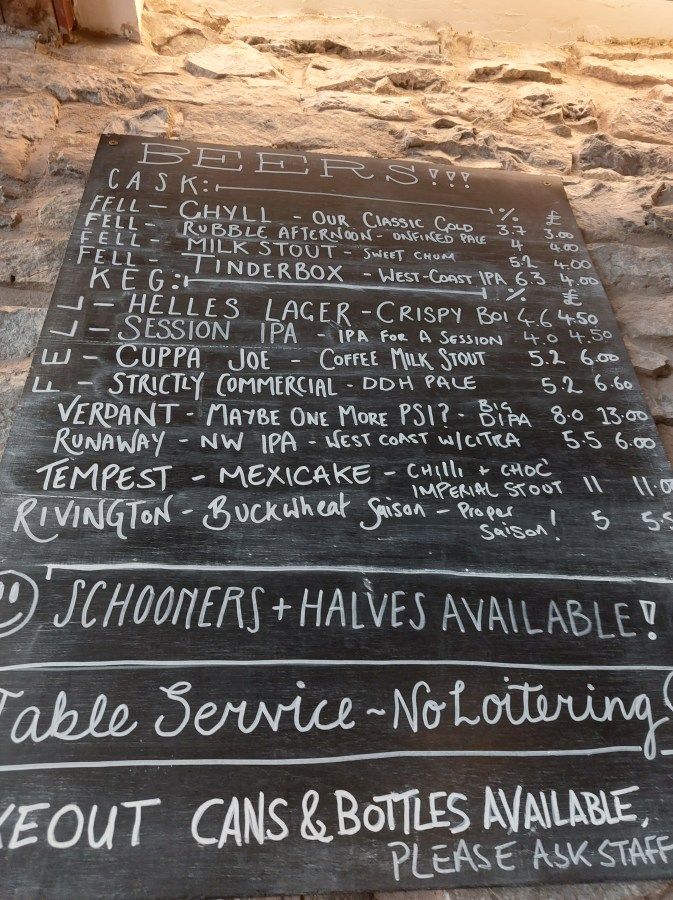 BEERS!!!
CASK: % £
FELL - CHYLL - OUR CLASSIC GOLD 3.7 3.00
FELL - RUBBLE AFTERNOON - UNFINED PALE 4 4.00
FELL - MILK STOUT - SWEET CHUM 5.2 4.00
FELL - TINDERBOX - WEST-COAST IPA 6.3 4.00
KEG: % £
FELL - HELLES LAGER - CRISPY BOI 4.6 4.50
- SESSION IPA - IPA FOR A SESSION 4.0 4.50
- CUPPA JOE - COFFEE MILK STOUT 5.2 6.00
- STRICTLY COMMERCIAL - DDH PALE 5.2 6.60
VERDANT - MAYBE ONE MORE PSI? - BIG DIPA 8.0 13.00
RUNAWAY - NW IPA - WEST COAST W/CITRA 5.5 6.00
TEMPEST - MEXICAKE - CHILLI + CHOC
IMPERIAL STOUT 11 11.0
RIVINGTON - Buckwheat Saison - Proper
Saison! 5 5.5
SCHOONERS + HALVES AVAILABLE!
Table Service ~ No Loitering
KEOUT CANS & BOTTLES AVAILABLE,
PLEASE ASK STAFF